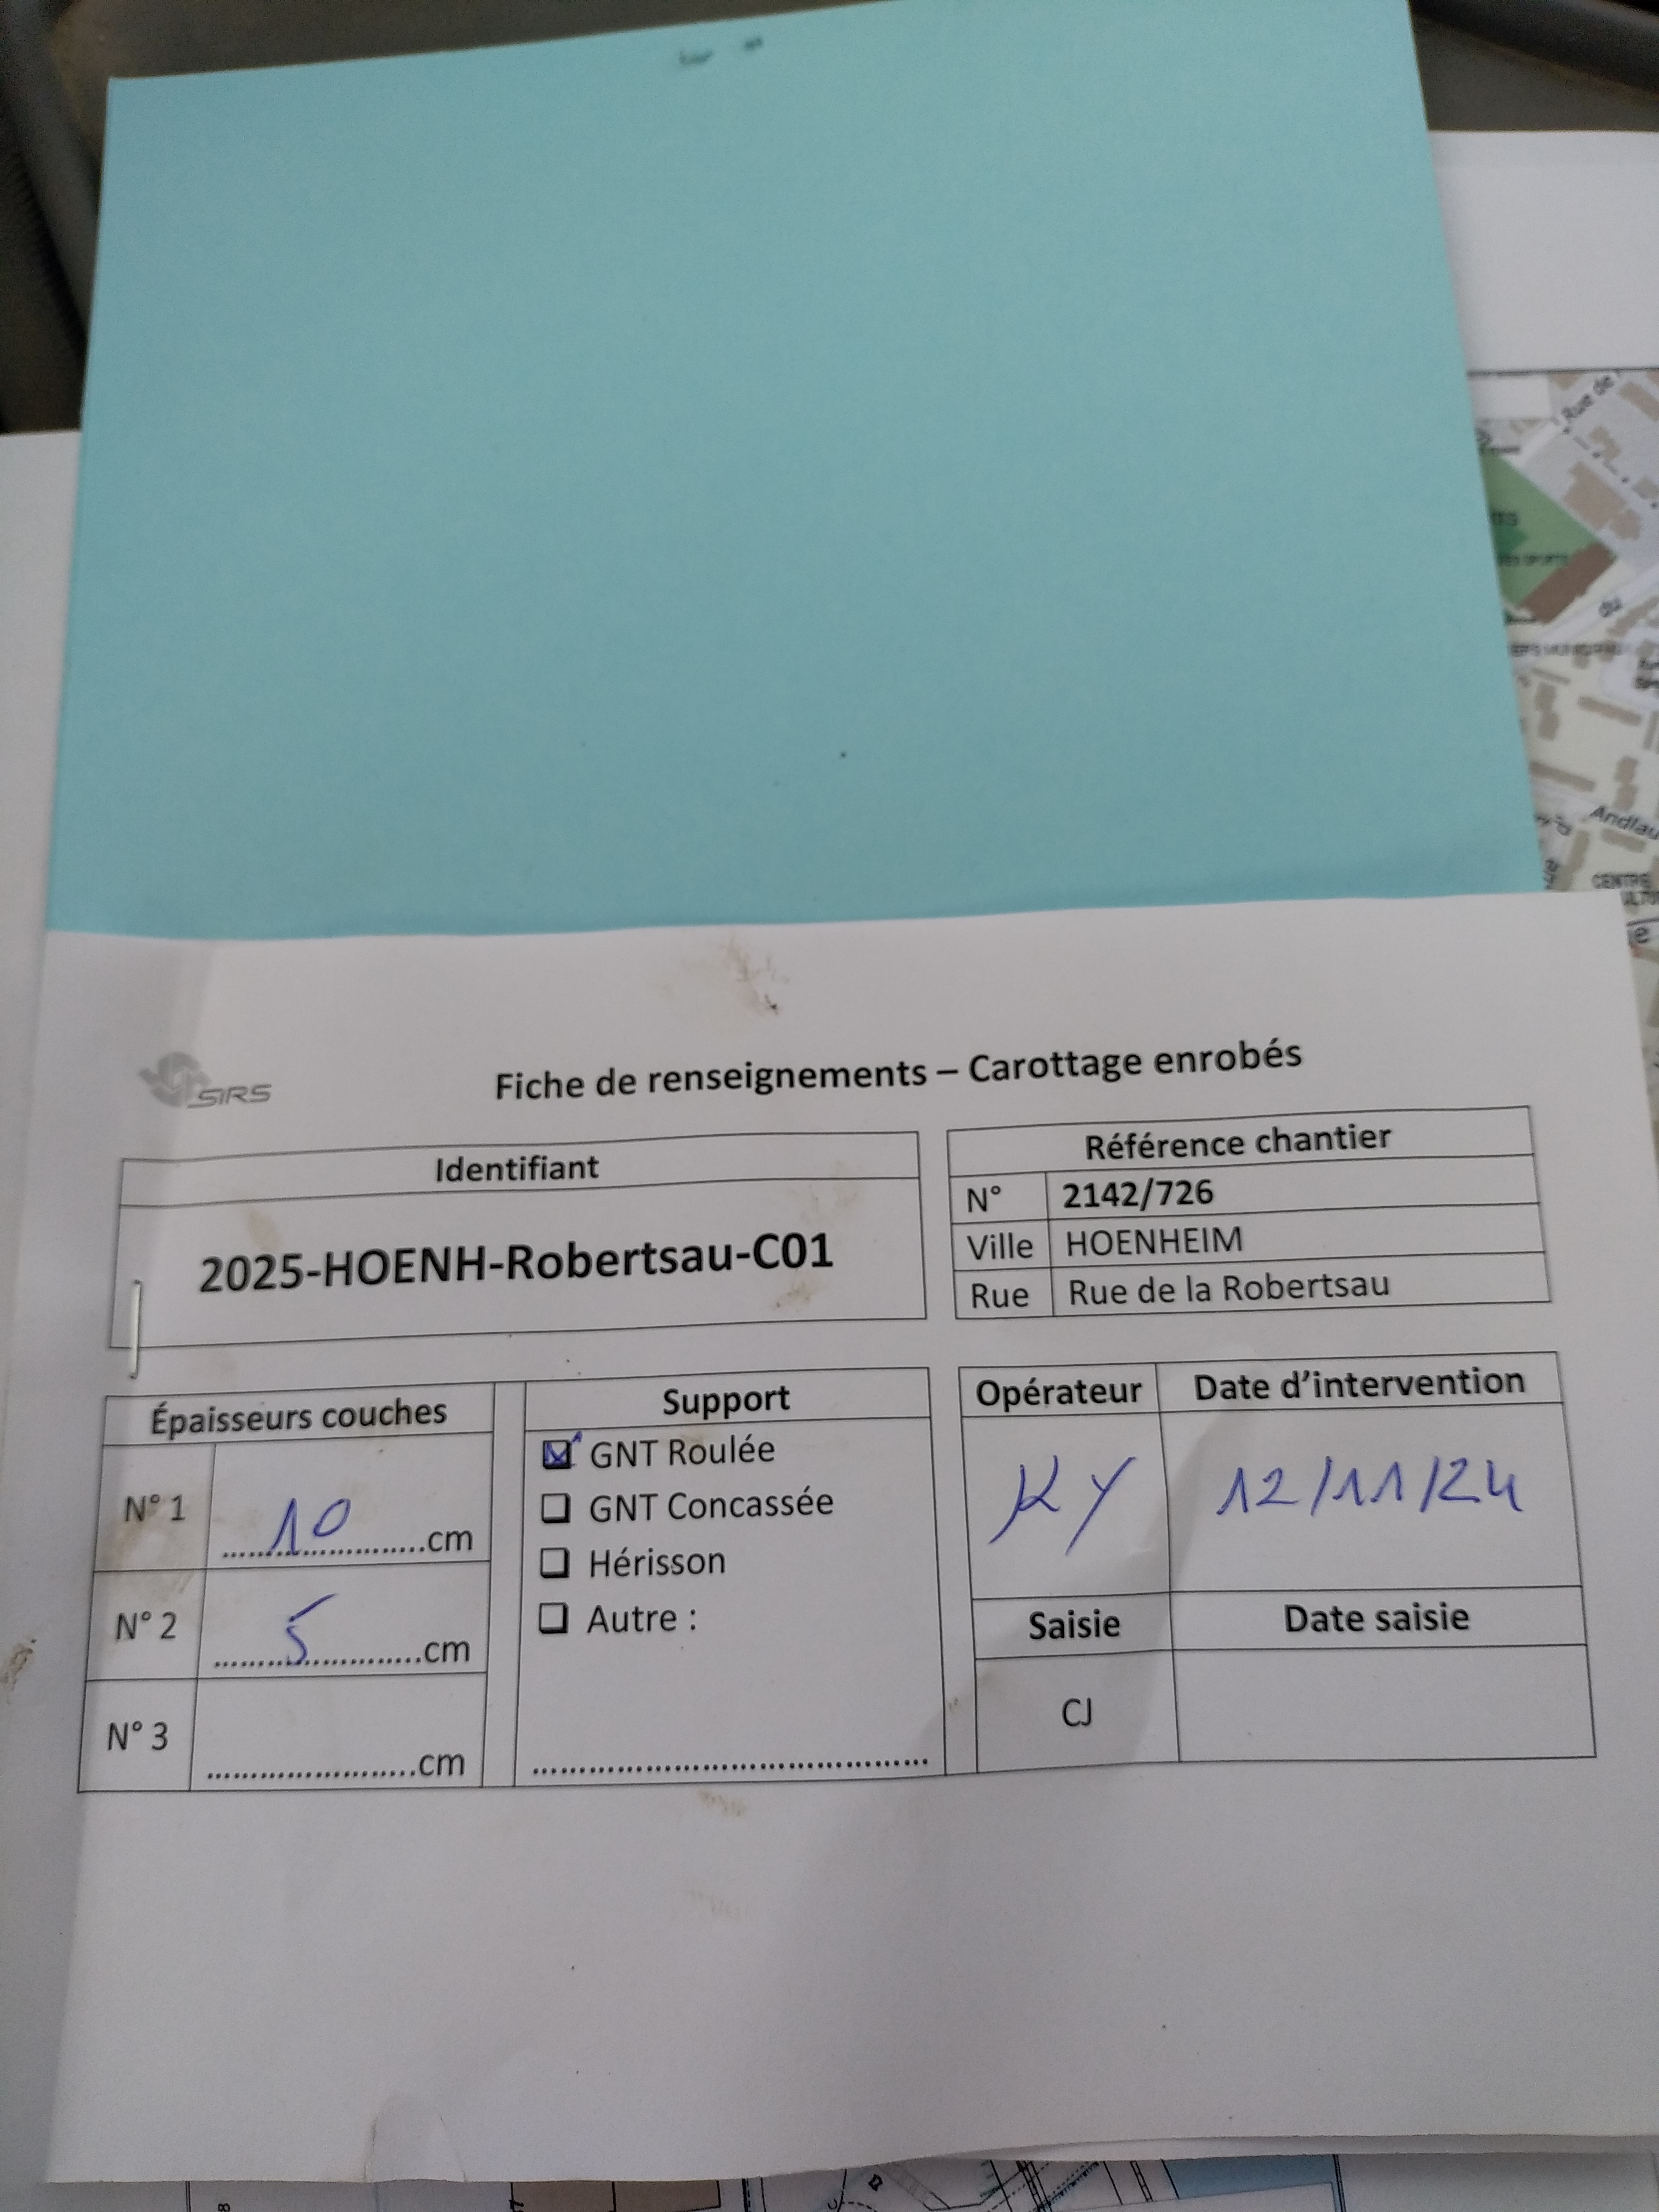 SIRS
Fiche de renseignements – Carottage enrobés
Identifiant
2025-HOENH-Robertsau-C01
Référence chantier
N° 2142/726
Ville HOENHEIM
Rue Rue de la Robertsau
Épaisseurs couches
N° 1 10 cm
N° 2 5 cm
N° 3 ........................cm
Support
GNT Roulée
GNT Concassée
Hérisson
Autre :
Opérateur Date d'intervention
KY 12/11/24
Saisie Date saisie
CJ
Rue de
du
Andlau
CENTRE